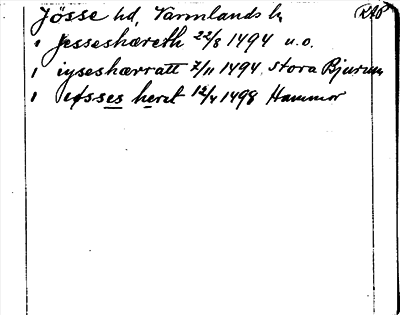 Jösse hd, Värmlands l. RAP
i Jesseshæreth 22/8 1494 u.o.
i iyseshærratt 7/11 1494, Stora Bjurum
i heret 12/4 1498 Hammar